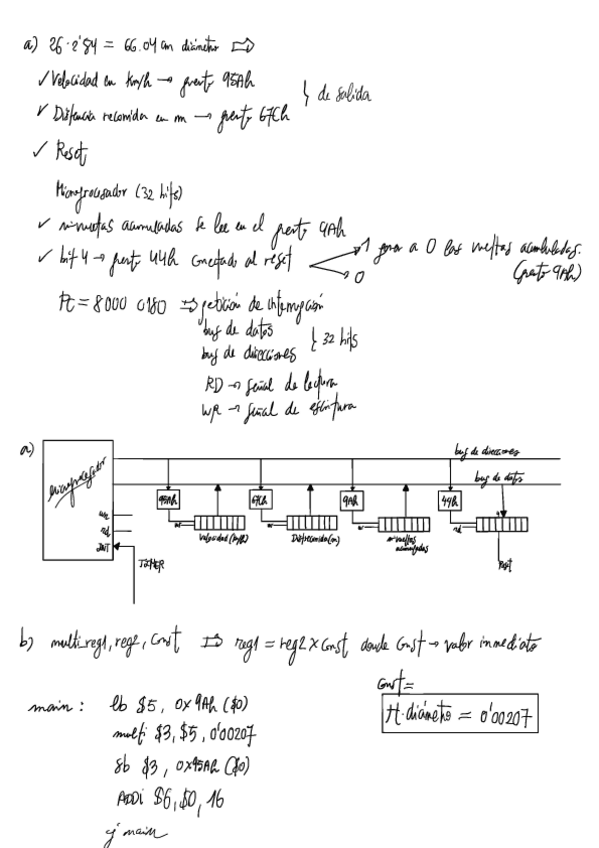 a) 26·2'54 = 66.04 cm diámetro ⇒
✓ Velocidad en km/h → puerto 95Ah
✓ Distancia recorrida en m → puerto 67Ch } de salida
✓ Reset
Microprocesador (32 bits)
✓ nº vueltas acumuladas se lee en el puerto 9Ah
✓ bit 4 → puerto 44h conectado al reset → 1 pone a 0 las vueltas acumuladas.
→ 0 (puerto 9Ah)
Pc = 8000 0180 ⇒ petición de interrupción
bus de datos
bus de direcciones } 32 bits
RD → señal de lectura
WR → señal de escritura
a)
bus de direcciones
microprocesador
bus de datos
95Ah 67Ch 9Ah 44h
wr
rd
INT
velocidad (km/h) Dist recorrida (m) nº vueltas acumuladas
rd
Reset
TIMER
b) multi reg1, reg2, Const ⇒ reg1 = reg2 x Const donde Const → valor inmediato
Const =
π·diámetro = 0'00207
main: lb $5, 0x9Ah ($0)
multi $3, $5, 0'00207
sb $3, 0x95Ah ($0)
ADDi $6, $0, 16
j main